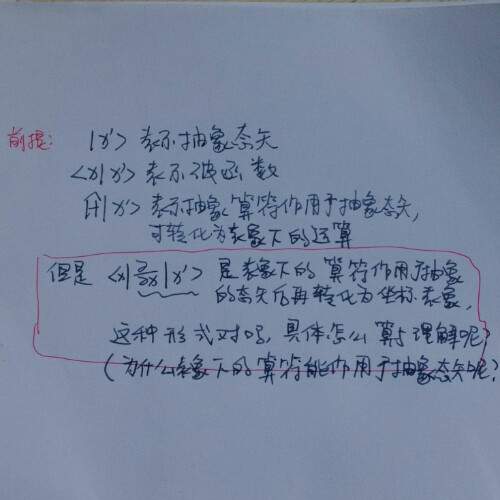 前提: |x'> 表示抽象态矢
<x|x'> 表示波函数
Ĥ|x'> 表示抽象算符作用于抽象态矢,
可转化为表象下的运算
但是 <x|∂/∂x|x'> 是表象下的算符作用于抽象
的态矢后再转化为坐标表象,
这种形式对吗, 具体怎么算与理解呢?
(为什么表象下的算符能作用于抽象态矢呢?